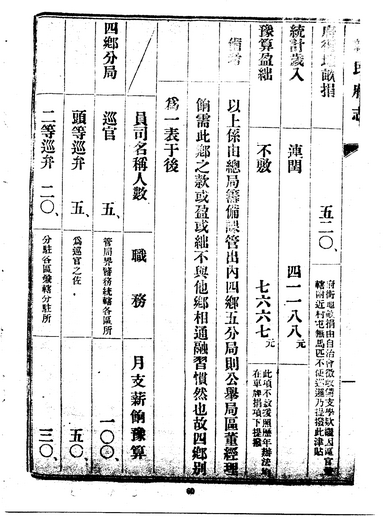 府志
五二〇、
統計歲入
連閏
四一一八八元
豫算盈絀
不敷
七六六七元
此項不敷援照歷年辦法
在車牌捐項下提撥
備考
以上係由總局籌備課管出內四鄉五分局則公舉局區董經理
餉需此鄉之款或盈或絀不與他鄉相通融習慣然也故四鄉別
為一表于後
員司名稱人數
職務
月支薪餉豫算
四鄉分局
巡官
五、
管局界警務統轄各區所
一〇〇、
頭等巡弁
五、
為巡官之佐、
五〇、
二等巡弁
二〇、
分駐各區統轄分駐所
三〇、